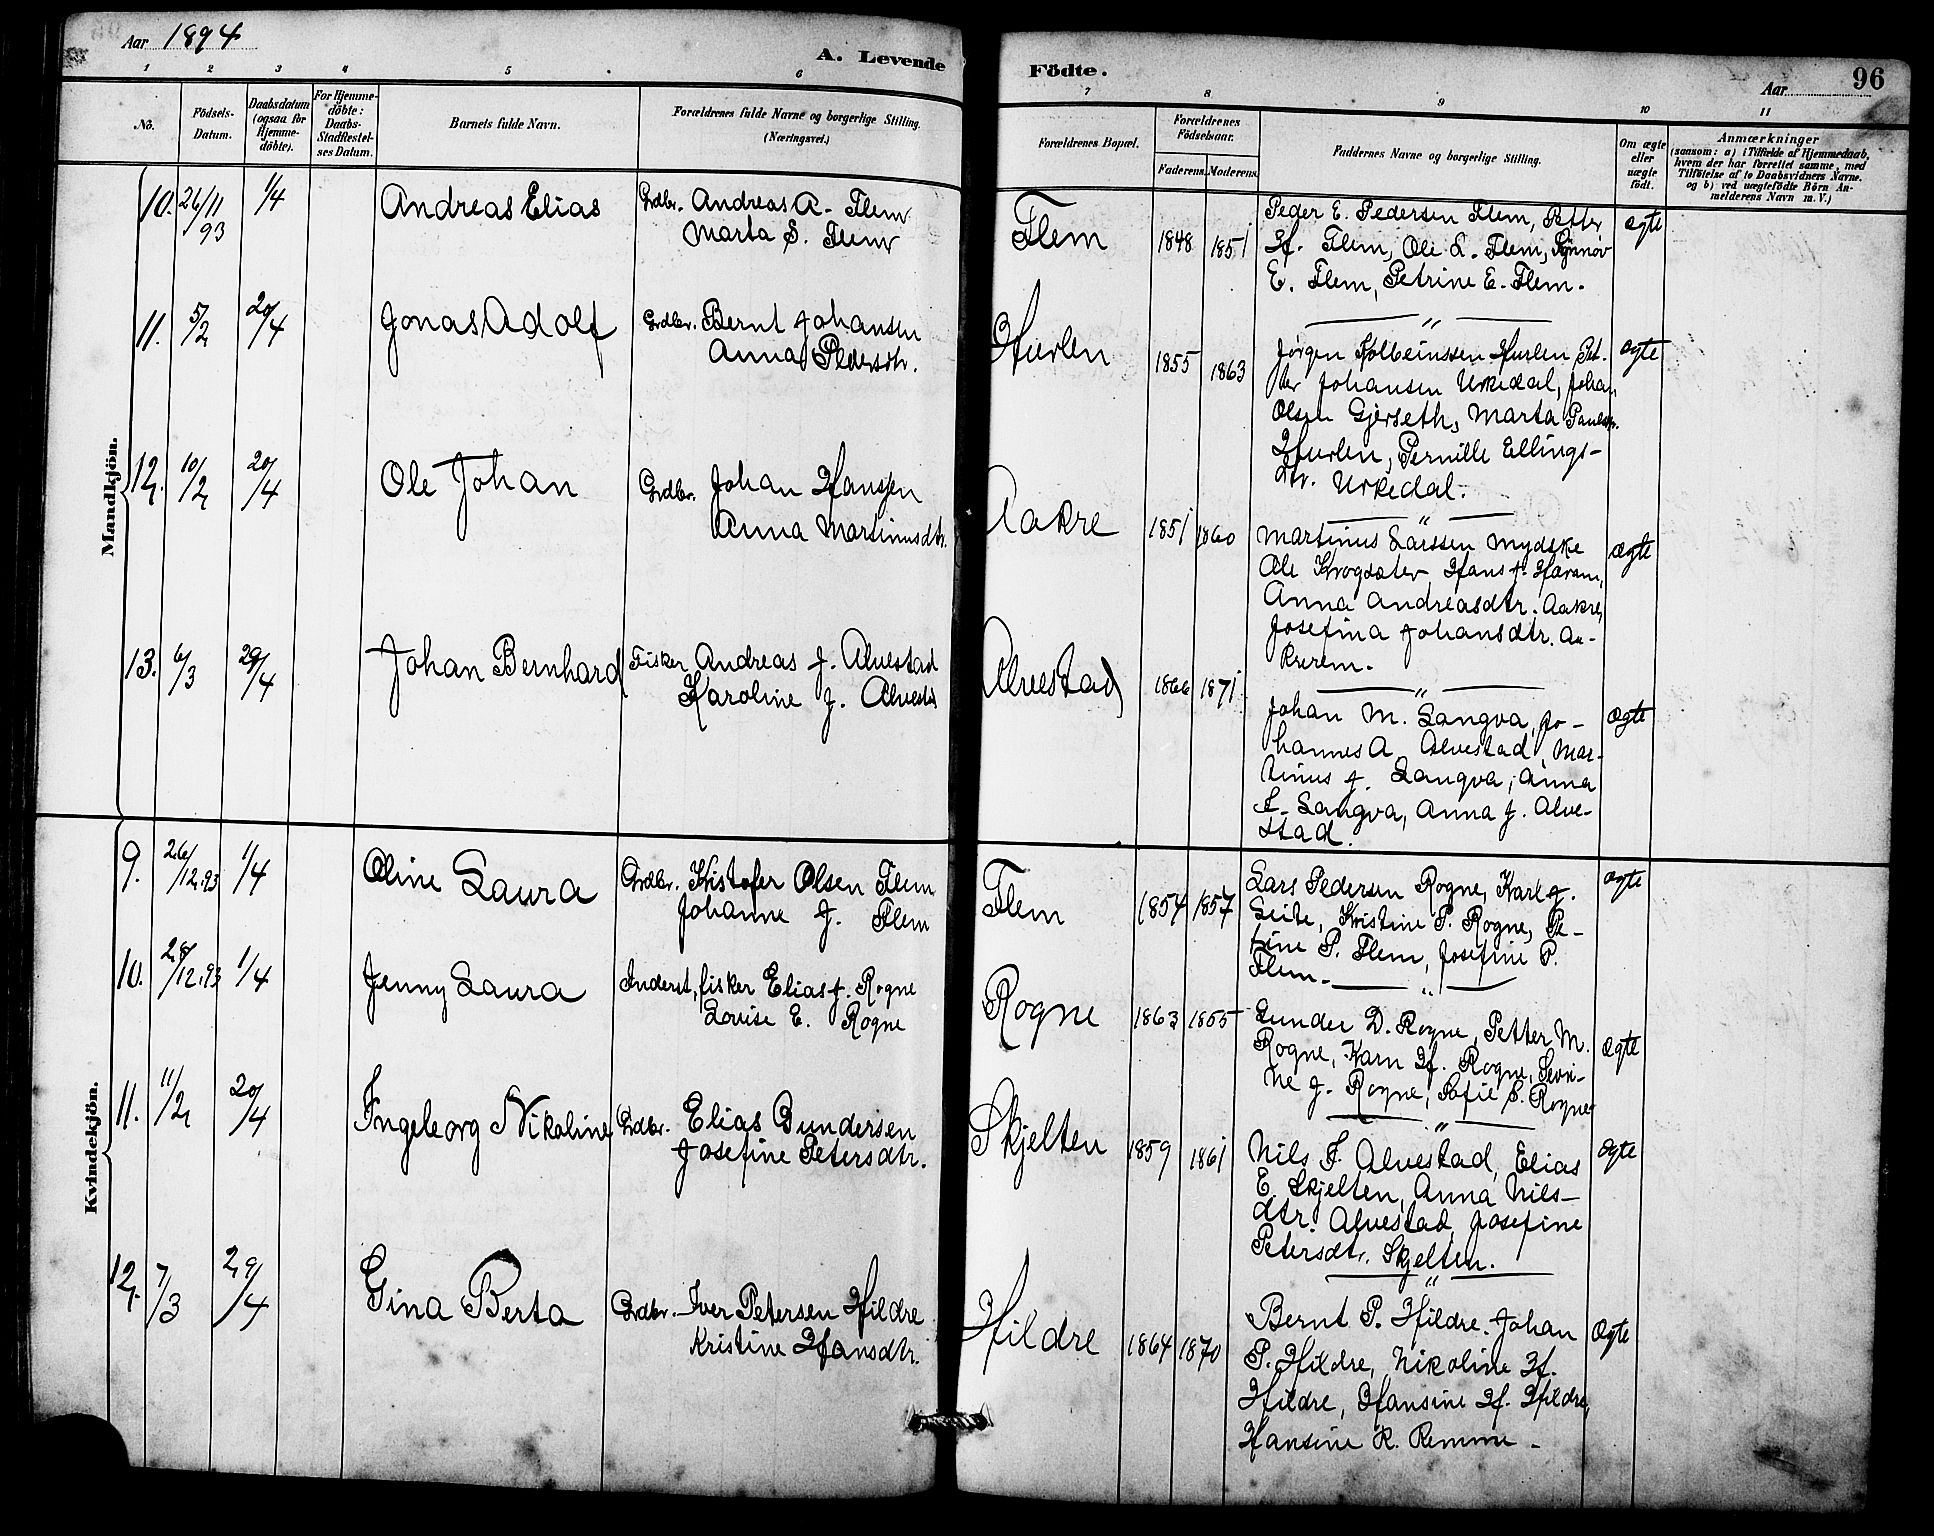 Aar 1894
A. Levende
Födte.
Aar
96
1 2 3 4 5 6 7 8 9 10 11
No.
Födsels-
Datum.
Daabsdatum
(ogsaa for
Hjemme-
döbte).
For Hjemme-
döbte:
Daabs-
Stadfæstel-
ses Datum.
Barnets fulde Navn.
Forældrenes fulde Navne og borgerlige Stilling.
(Næringsvei.)
Forældrenes Bopæl.
Forældrenes
Födselsaar.
Faderens. Moderens.
Faddernes Navne og borgerlige Stilling.
Om ægte
eller
uægte
födt.
Anmærkninger
(saasom: a) i Tilfælde af Hjemmedaab,
hvem der har forrettet samme, med
Tilföielse af to Daabsvidners Navne.
og b) ved uægtefödte Börn An-
melderens Navn m. V.)
Mandkjön.
10. 26/11 93 1/4 Andreas Elias Grdbr. Andreas A. Flem
Marta S. Flem
Flem 1848 1851
Peder E. Pedersen Flem, Petter
H. Flem, Ole L. Flem, Synnöv
E. Flem, Petrine E. Flem.
ægte
11. 5/2 20/4 Jonas Adolf Grdbr. Bernt Johansen
Anna Pedersdtr.
Hurlen 1855 1863
Jörgen Kolbeinssen Hurlen, Pet-
ter Johansen Urkedal, Johan
Olsen Gjerseth, Marta Paulsdtr.
Hurlen, Pernille Ellings-
dtr. Urkedal.
ægte
12. 10/2 20/4 Ole Johan Grdbr. Johan Hansen
Anna Martinusdtr.
Aakre 1851 1860
Martinus Larssen Mydske
Ole Krogsæter, Hans J. Haram,
Anna Andreasdtr. Aakre,
Josefina Johansdtr. Aa-
krerem.
ægte
13. 6/3 29/4 Johan Bernhard Fisker Andreas J. Alvestad
Karoline J. Alvestad
Alvestad 1866 1871
Johan M. Langva, Jo-
hannes A. Alvestad, Mar-
tinus J. Langva, Anna
I. Langva, Anna J. Alve-
stad.
ægte
Kvindekjön.
9. 26/12.93 1/4 Oline Laura Grdbr. Kristofer Olsen Flem
Johanne J. Flem
Flem 1854 1857
Lars Pedersen Rogne, Karl J.
Leite, Kristine P. Rogne, Pe-
tine P. Flem, Josefine P.
Flem.
ægte
10. 28/12.93 1/4 Jenny Laura Inderst, fisker Elias J. Rogne
Lovise E. Rogne
Rogne 1863 1855
Gunder D. Rogne, Petter M.
Rogne, Karn H. Rogne, Sevri-
ne J. Rogne, Sofie S. Rogne
ægte
11. 11/2 20/4 Ingeborg Nikoline Grdbr. Elias Gundersen
Josefine Petersdtr.
Skjelten 1859 1861
Nils I. Alvestad, Elias
E. Skjelten, Anna Nils-
dtr. Alvestad, Josefine
Petersdtr. Skjelten.
ægte
12. 7/3 29/4 Gina Berta Grdbr. Iver Petersen Hildre
Kristine Hansdtr.
Hildre 1864 1870
Bernt P. Hildre, Johan
P. Hildre, Nikoline H.
Hildre, Hansine H. Hildre,
Hansine K. Remme.
Ægte